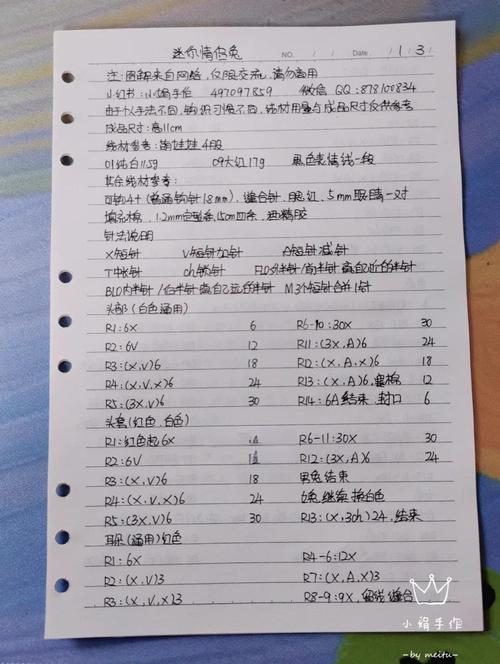 迷你情侣兔 NO. / / Date / 1/3
注:图解来自网络,仅限交流,请勿商用
小红书:小娟手作 497097859 微信 QQ:878100834
由于个人手法不同,钩织习惯不同,线材用量与成品尺寸仅供参考
成品尺寸:高11cm
线材参考:萌娃娃4股
01纯白11.59 09大红17g 黑色表情线一段
其余线材参考:
可钩4+(普通钩针1.8mm),缝合针,腮红,5mm眼睛一对
填充棉,1.2mm定型条15cm四条,酒精胶
针法说明
X短针 V短针加针 A短针减针
T中长针 ch锁针 FLO外半针/前半针离自己近的半针
BLO内半针/后半针离自己远的半针 M3个短针合并1针
头部(白色通用)
R1:6X 6 R6-10:30X 30
R2:6V 12 R11:(3X,A)6 24
R3:(X,V)6 18 R12:(X,A,X)6 18
R4:(X,V,X)6 24 R13:(X,A)6,塞棉 12
R5:(3X,V)6 30 R14:6A结束,封口 6
头套(红色,白色)
R1:红色起6X R6-11:30X 30
R2:6V 12 R12:(3X,A)6 24
R3:(X,V)6 18 男兔结束
R4:(X,V,X)6 24 女兔继续换白色
R5:(3X,V)6 30 R13:(X,3ch)24,结束
耳朵(通用)红色
R1:6X R4-6:12X
R2:(X,V)3 R7:(X,A,X)3
R3:(X,V,X)3 R8-9:9X,留线缝合
小娟手作
-by meitu-